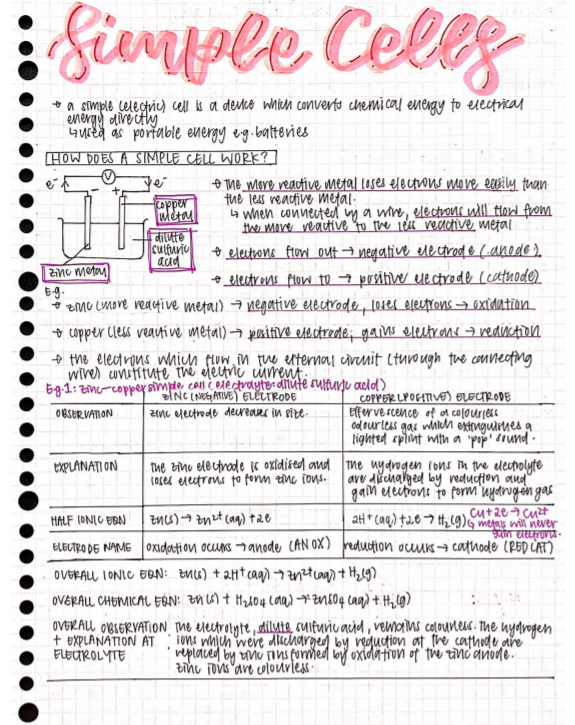 Simple Cells
→ a simple (electric) cell is a device which converts chemical energy to electrical
energy directly
↳ used as portable energy e.g. batteries
HOW DOES A SIMPLE CELL WORK?
e⁻ V e⁻
- +
copper
metal
dilute
sulfuric
acid
zinc metal
→ the more reactive metal loses electrons more easily than
the less reactive metal.
↳ when connected by a wire, electrons will flow from
the more reactive to the less reactive metal
→ electrons flow out → negative electrode (anode).
→ electrons flow to → positive electrode (cathode)
E.g.
→ zinc (more reactive metal) → negative electrode, loses electrons → oxidation
→ copper (less reactive metal) → positive electrode; gains electrons → reduction
→ the electrons which flow in the external circuit (through the connecting
wire) constitute the electric current.
E.g.1: zinc-copper simple cell (electrolyte: dilute sulfuric acid)
ZINC (NEGATIVE) ELECTRODE COPPER (POSITIVE) ELECTRODE
OBSERVATION zinc electrode decreases in size.
Effervescence of a colourless
odourless gas which extinguishes a
lighted splint with a 'pop' sound.
EXPLANATION
the zinc electrode is oxidised and
loses electrons to form zinc ions.
the hydrogen ions in the electrolyte
are discharged by reduction and
gain electrons to form hydrogen gas
HALF IONIC EQN zn(s) → zn²⁺(aq) + 2e 2H⁺(aq) + 2e → H₂(g)
Cu + 2e → Cu²⁺
↳ metals will never
gain electrons.
ELECTRODE NAME oxidation occurs → anode (AN OX) reduction occurs → cathode (RED CAT)
OVERALL IONIC EQN: zn(s) + 2H⁺(aq) → zn²⁺(aq) + H₂(g)
OVERALL CHEMICAL EQN: zn(s) + H₂SO₄(aq) → ZnSO₄(aq) + H₂(g)
OVERALL OBSERVATION
+ EXPLANATION AT
ELECTROLYTE
: the electrolyte, dilute sulfuric acid, remains colourless. the hydrogen
ions which were discharged by reduction at the cathode are
replaced by zinc ions formed by oxidation of the zinc anode.
zinc ions are colourless.